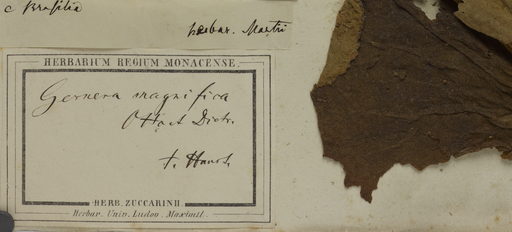 e Brasilia
herbar. Martii
HERBARIUM REGIUM MONACENSE.
Gesnera magnifica
Otto et Dietr.
HERB. ZUCCARINII.
Herbar. Univ. Ludov. Maximil.